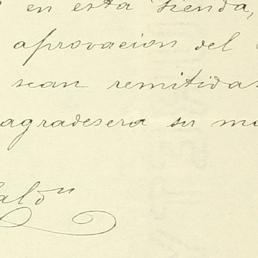 en esta tienda,
aprovacion del
sean remitidas
agradesera su